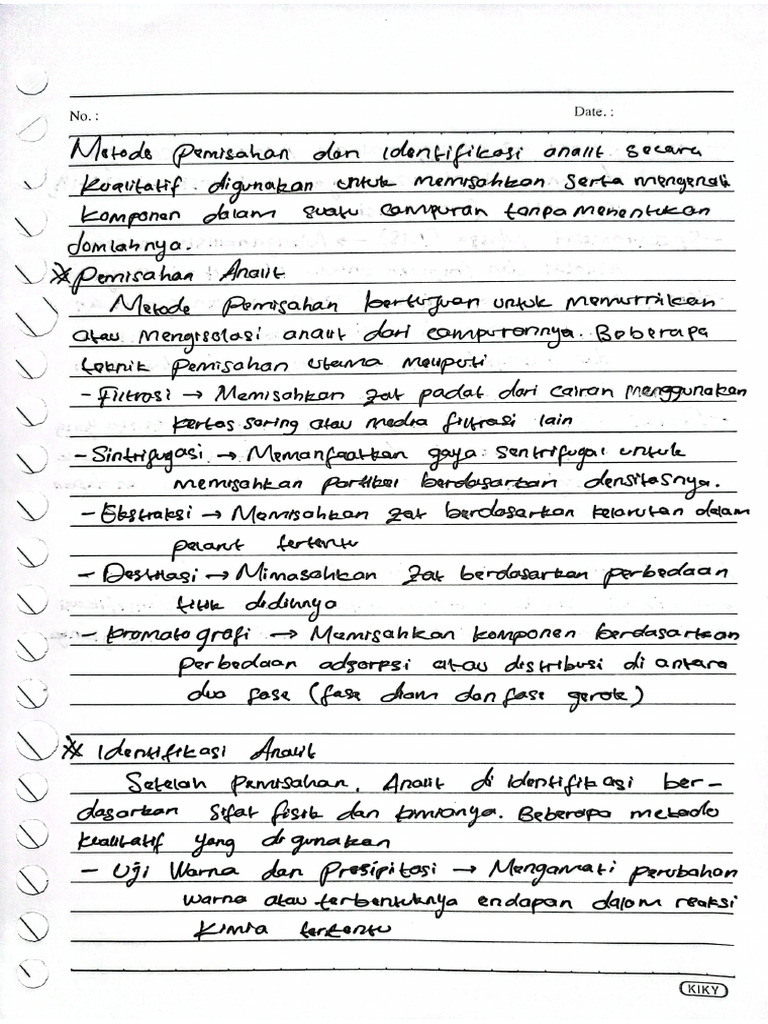 No. :
Date. :
Metode Pemisahan dan Identifikasi analit secara
kualitatif digunakan untuk memisahkan serta mengenali
komponen dalam suatu campuran tanpa menentukan
Jomlahnya.
* Pemisahan Analit
Metode Pemisahan bertujuan untuk memurnikan
atau mengisolasi analit dari campurannya. Beberapa
teknik pemisahan utama meliputi
- Filtrasi → Memisahkan zat padat dari cairan menggunakan
kertas saring atau media filtrasi lain
- Sintrifugasi → Memanfaatkan gaya sentrifugal untuk
memisahkan partikel berdasarkan densitasnya.
- Ekstraksi → Memisahkan zat berdasarkan kelarutan dalam
pelarut tertentu
- Destilasi → Mimasahkan zat berdasarkan perbedaan
titik didihnya
- kromatografi → Memisahkan komponen berdasarkan
perbedaan adsorpsi atau distribusi di antara
dua fase (fase diam dan fase gerak)
* Identifikasi Analit
Setelah pemisahan, Analit di identifikasi ber-
dasarkan sifat fisik dan kimianya. Beberapa metode
kualitatif yang digunakan
- Uji Warna dan Presipitasi → Mengamati perubahan
warna atau terbentuknya endapan dalam reaksi
kimia tertentu
KIKY